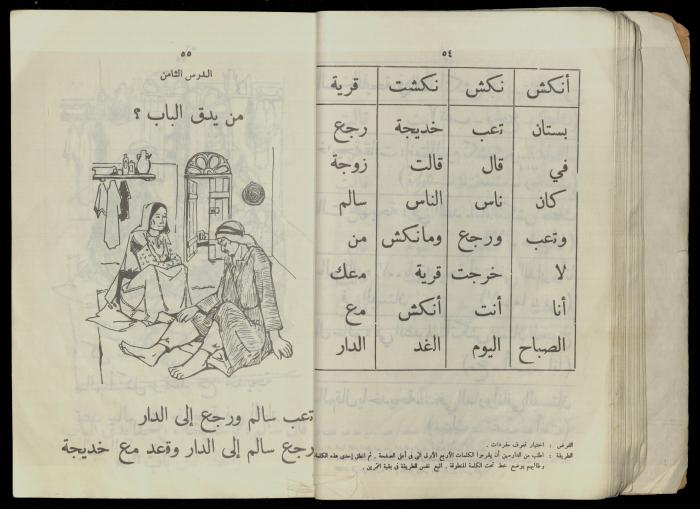 ٥٤
أنكش نكش نكشت قرية
بستان تعب خديجة رجع
في قال قالت زوجة
كان ناس الناس سالم
وتعب ورجع ومانكش من
لا خرجت قرية معك
أنا أنت أنكش مع
الصباح اليوم الغد الدار
الغرض : اختبار تعرف مفردات .
الطريقة : اطلب من الدارسين أن يقرءوا الكلمات الأربع الأولى التى فى أعلى الصفحة . ثم انطق إحدى هذه الكلمات
وطالبهم بوضع خط تحت الكلمة المنطوقة . اتبع نفس الطريقة فى بقية التمرين .
٥٥
الدرس الثامن
من يدق الباب ؟
تعب سالم ورجع إلى الدار
رجع سالم إلى الدار وقعد مع خديجة